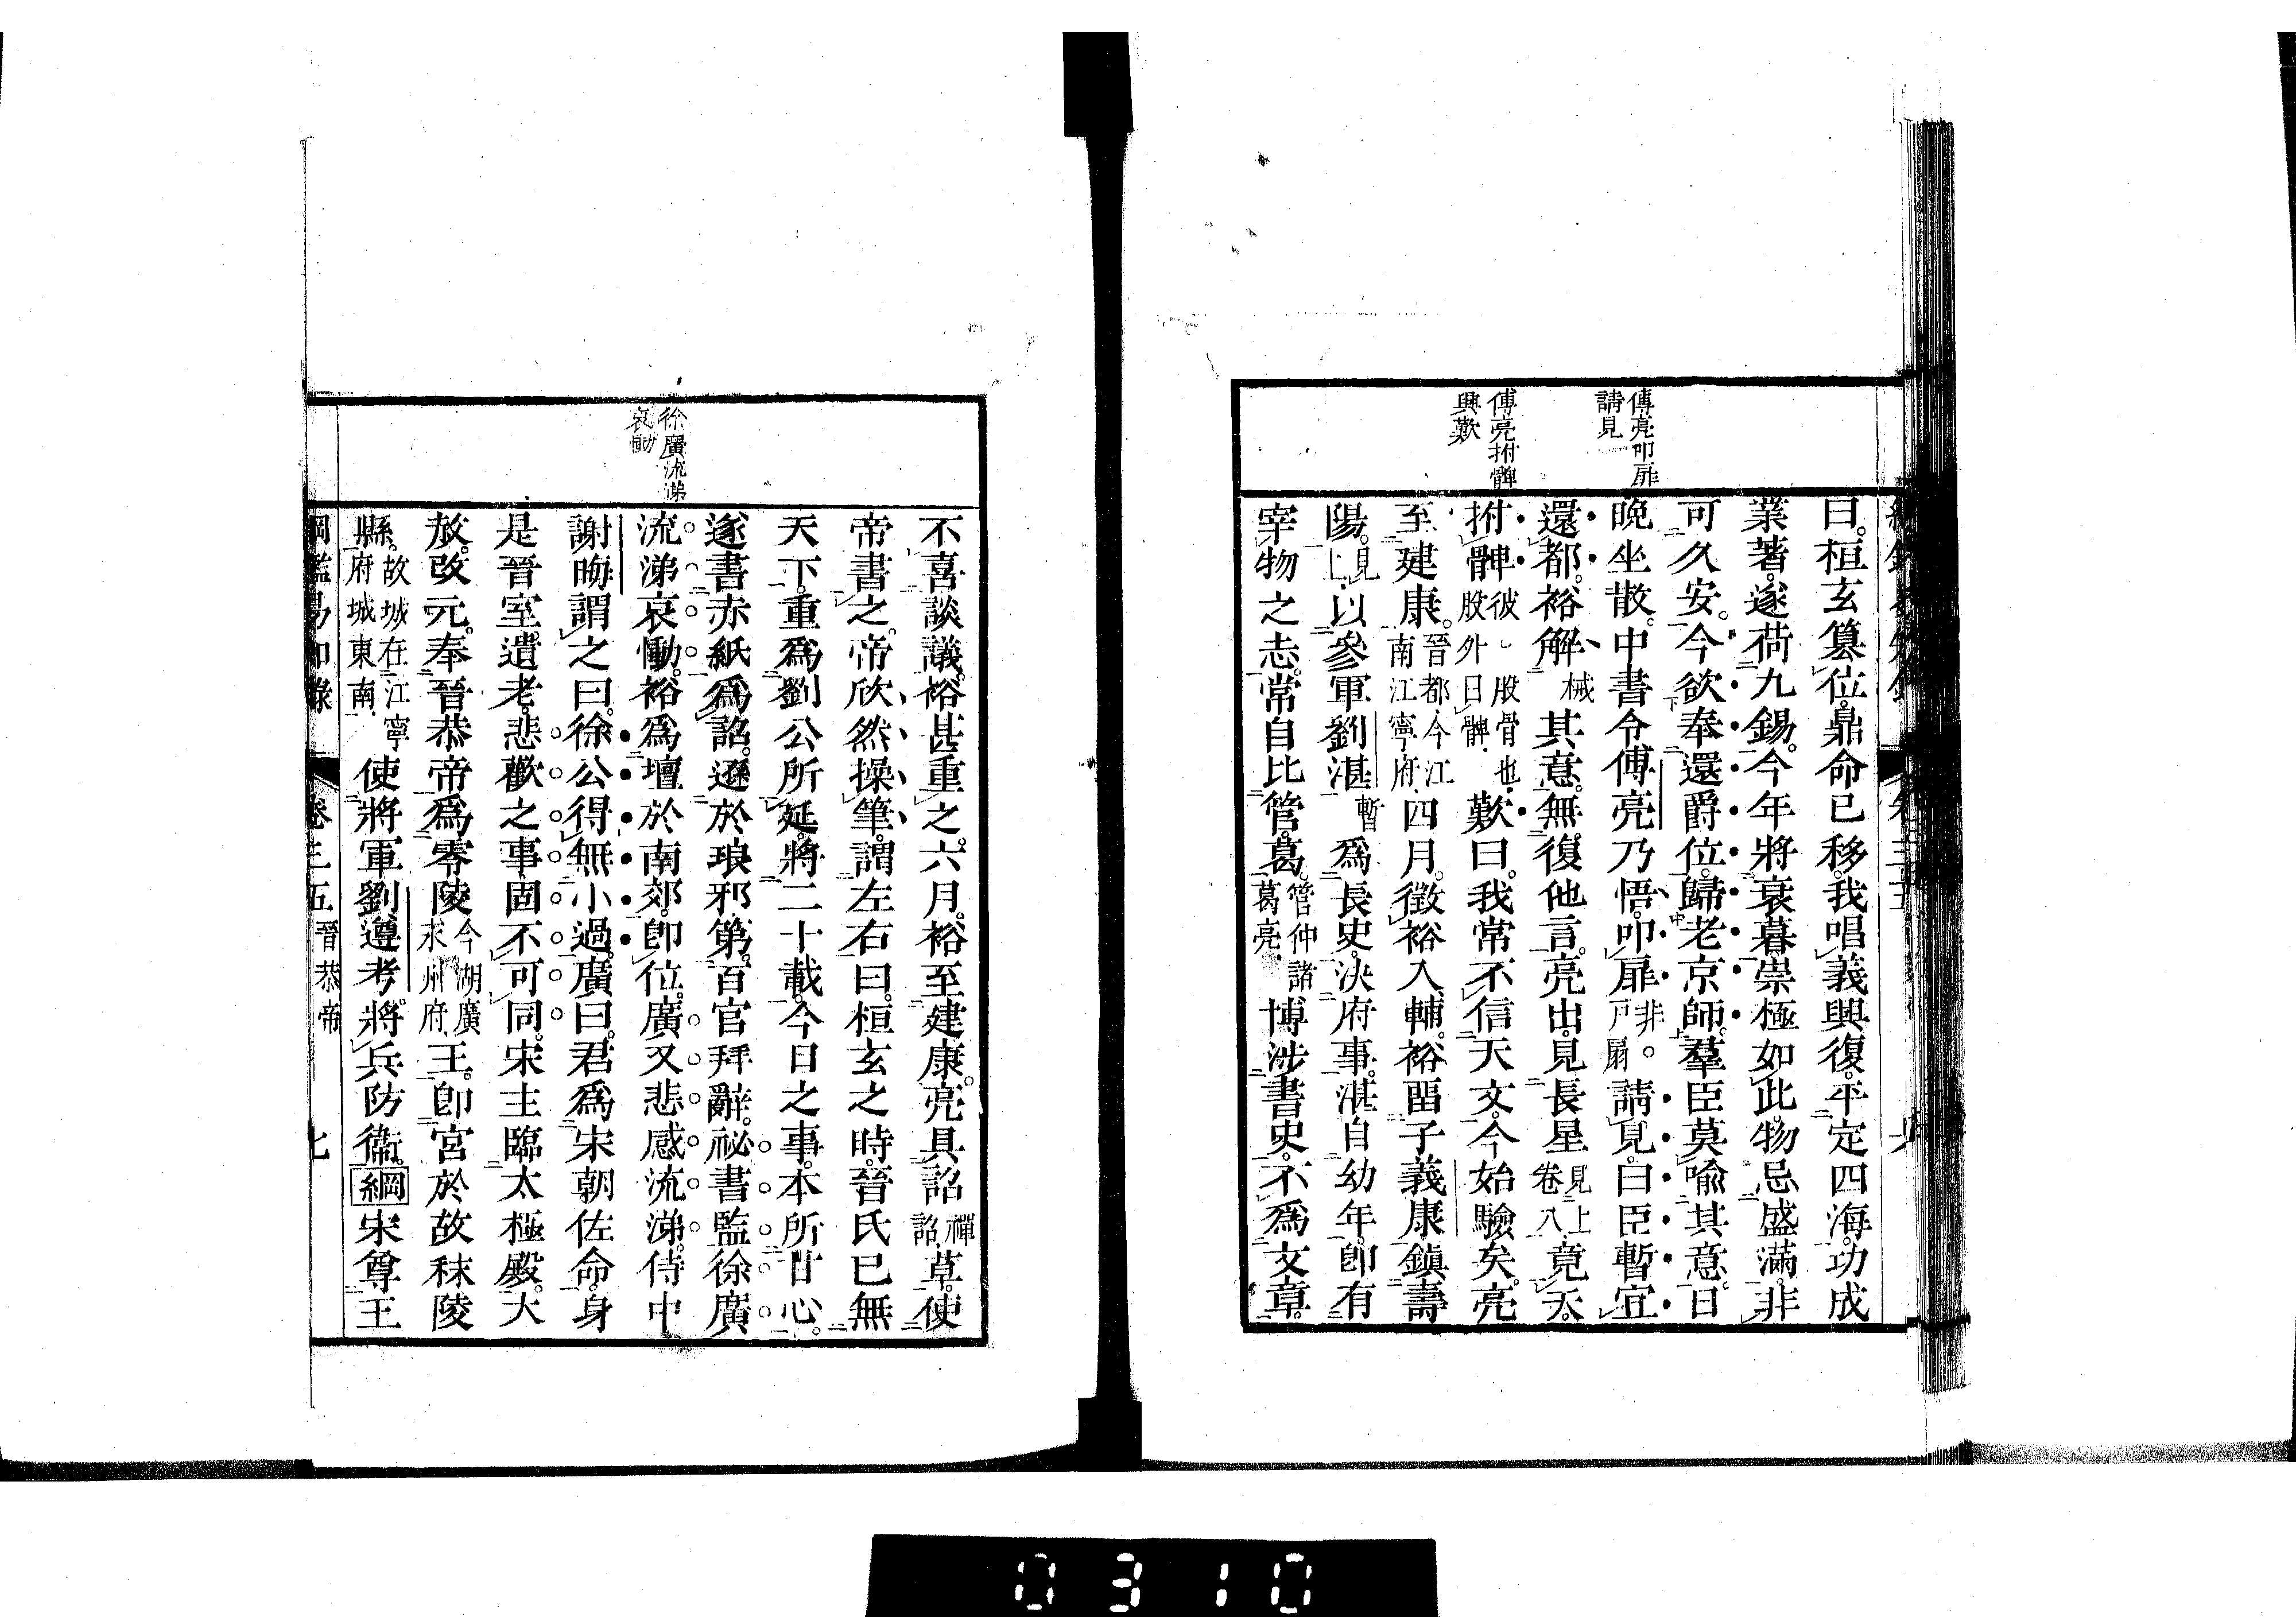 傅亮叩扉
請見
傅亮拊髀
興歎
曰。桓玄篡位。鼎命已移。我唱義興復。平定四海。功成
業著。遂荷九錫。今年將衰暮。崇極如此。物忌盛滿。非
可久安。今欲奉還爵位。歸老京師。羣臣莫喻其意。日
晚坐散。中書令傅亮乃悟。叩扉非。戸扇請見。曰臣暫宜
還都。裕解械其意。無復他言。亮出。見長星見上卷八竟天。
拊髀彼。股骨也。股外曰髀歎曰。我常不信天文。今始驗矣。亮
至建康。晉都今江南江寧府四月。徵裕入輔。裕留子義康鎮壽
陽。見上以參軍劉湛暫爲長史。決府事。湛自幼年。卽有
宰物之志。常自比管葛。管仲諸葛亮博涉書史。不爲文章。
徐廣流涕
哀慟
不喜談議。裕甚重之。六月。裕至建康。亮具詔禪詔草。使
帝書之。帝欣然操筆。謂左右曰。桓玄之時。晉氏已無
天下。重爲劉公所延。將二十載。今日之事。本所甘心。
遂書赤紙爲詔。遜於琅邪第。百官拜辭。祕書監徐廣
流涕哀慟。裕爲壇於南郊。卽位。廣又悲感流涕。侍中
謝晦謂之曰。徐公得無小過。廣曰。君爲宋朝佐命。身
是晉室遺老。悲歡之事。固不可同。宋主臨太極殿。大
赦。改元。奉晉恭帝爲零陵今湖廣永州府王。卽宮於故秣陵
縣。故城在江寧府城東南使將軍劉遵考。將兵防衞。綱宋尊王
綱鑑易知錄 卷三五 晉恭帝 七